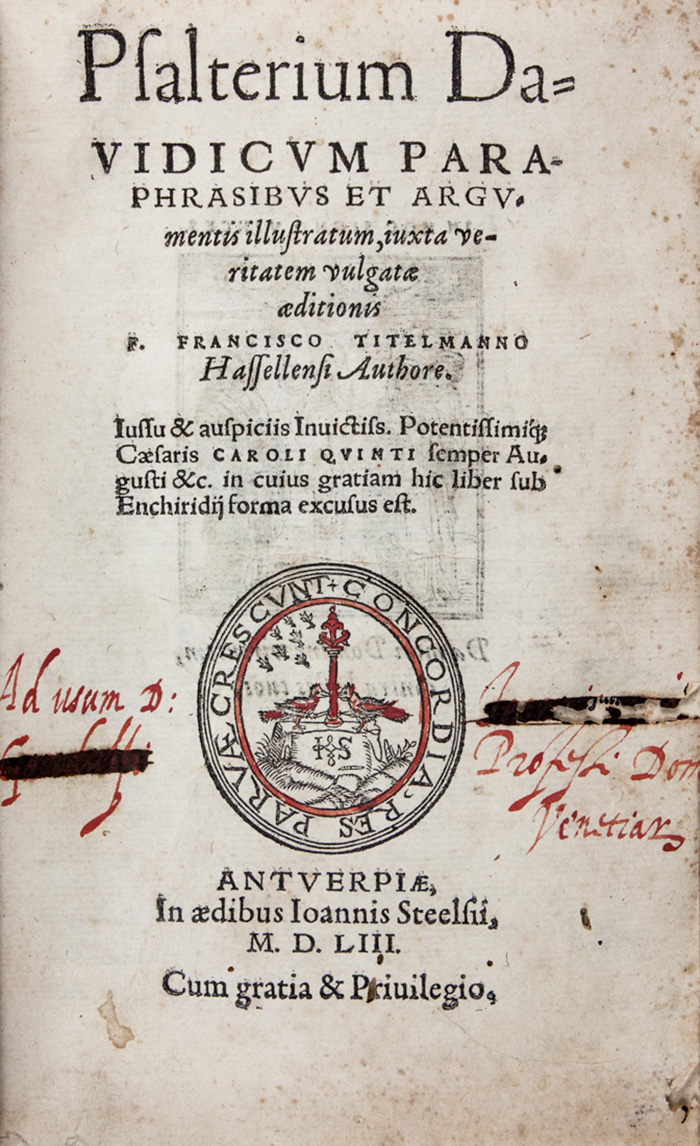 Pſalterium Da=
VIDICVM PARA-
PHRASIBVS ET ARGV.
mentis illuſtratum, iuxta ve-
ritatem vulgatæ
æditionis
F. FRANCISCO TITELMANNO
Haſſellenſi Authore.
Iuſſu & auſpiciis Inuictiſs. Potentiſſimiq;
Cæſaris CAROLI QVINTI ſemper Au.
guſti &c. in cuius gratiam hic liber ſub
Enchiridij forma excuſus eſt.
CONCORDIA. RES PARVÆ CRESCVNT
IHS
Ad usum D:
Profeſſi Dom
Venetiar
ANTVERPIÆ,
In ædibus Ioannis Steelſii,
M. D. LIII.
Cum gratia & Priuilegio,